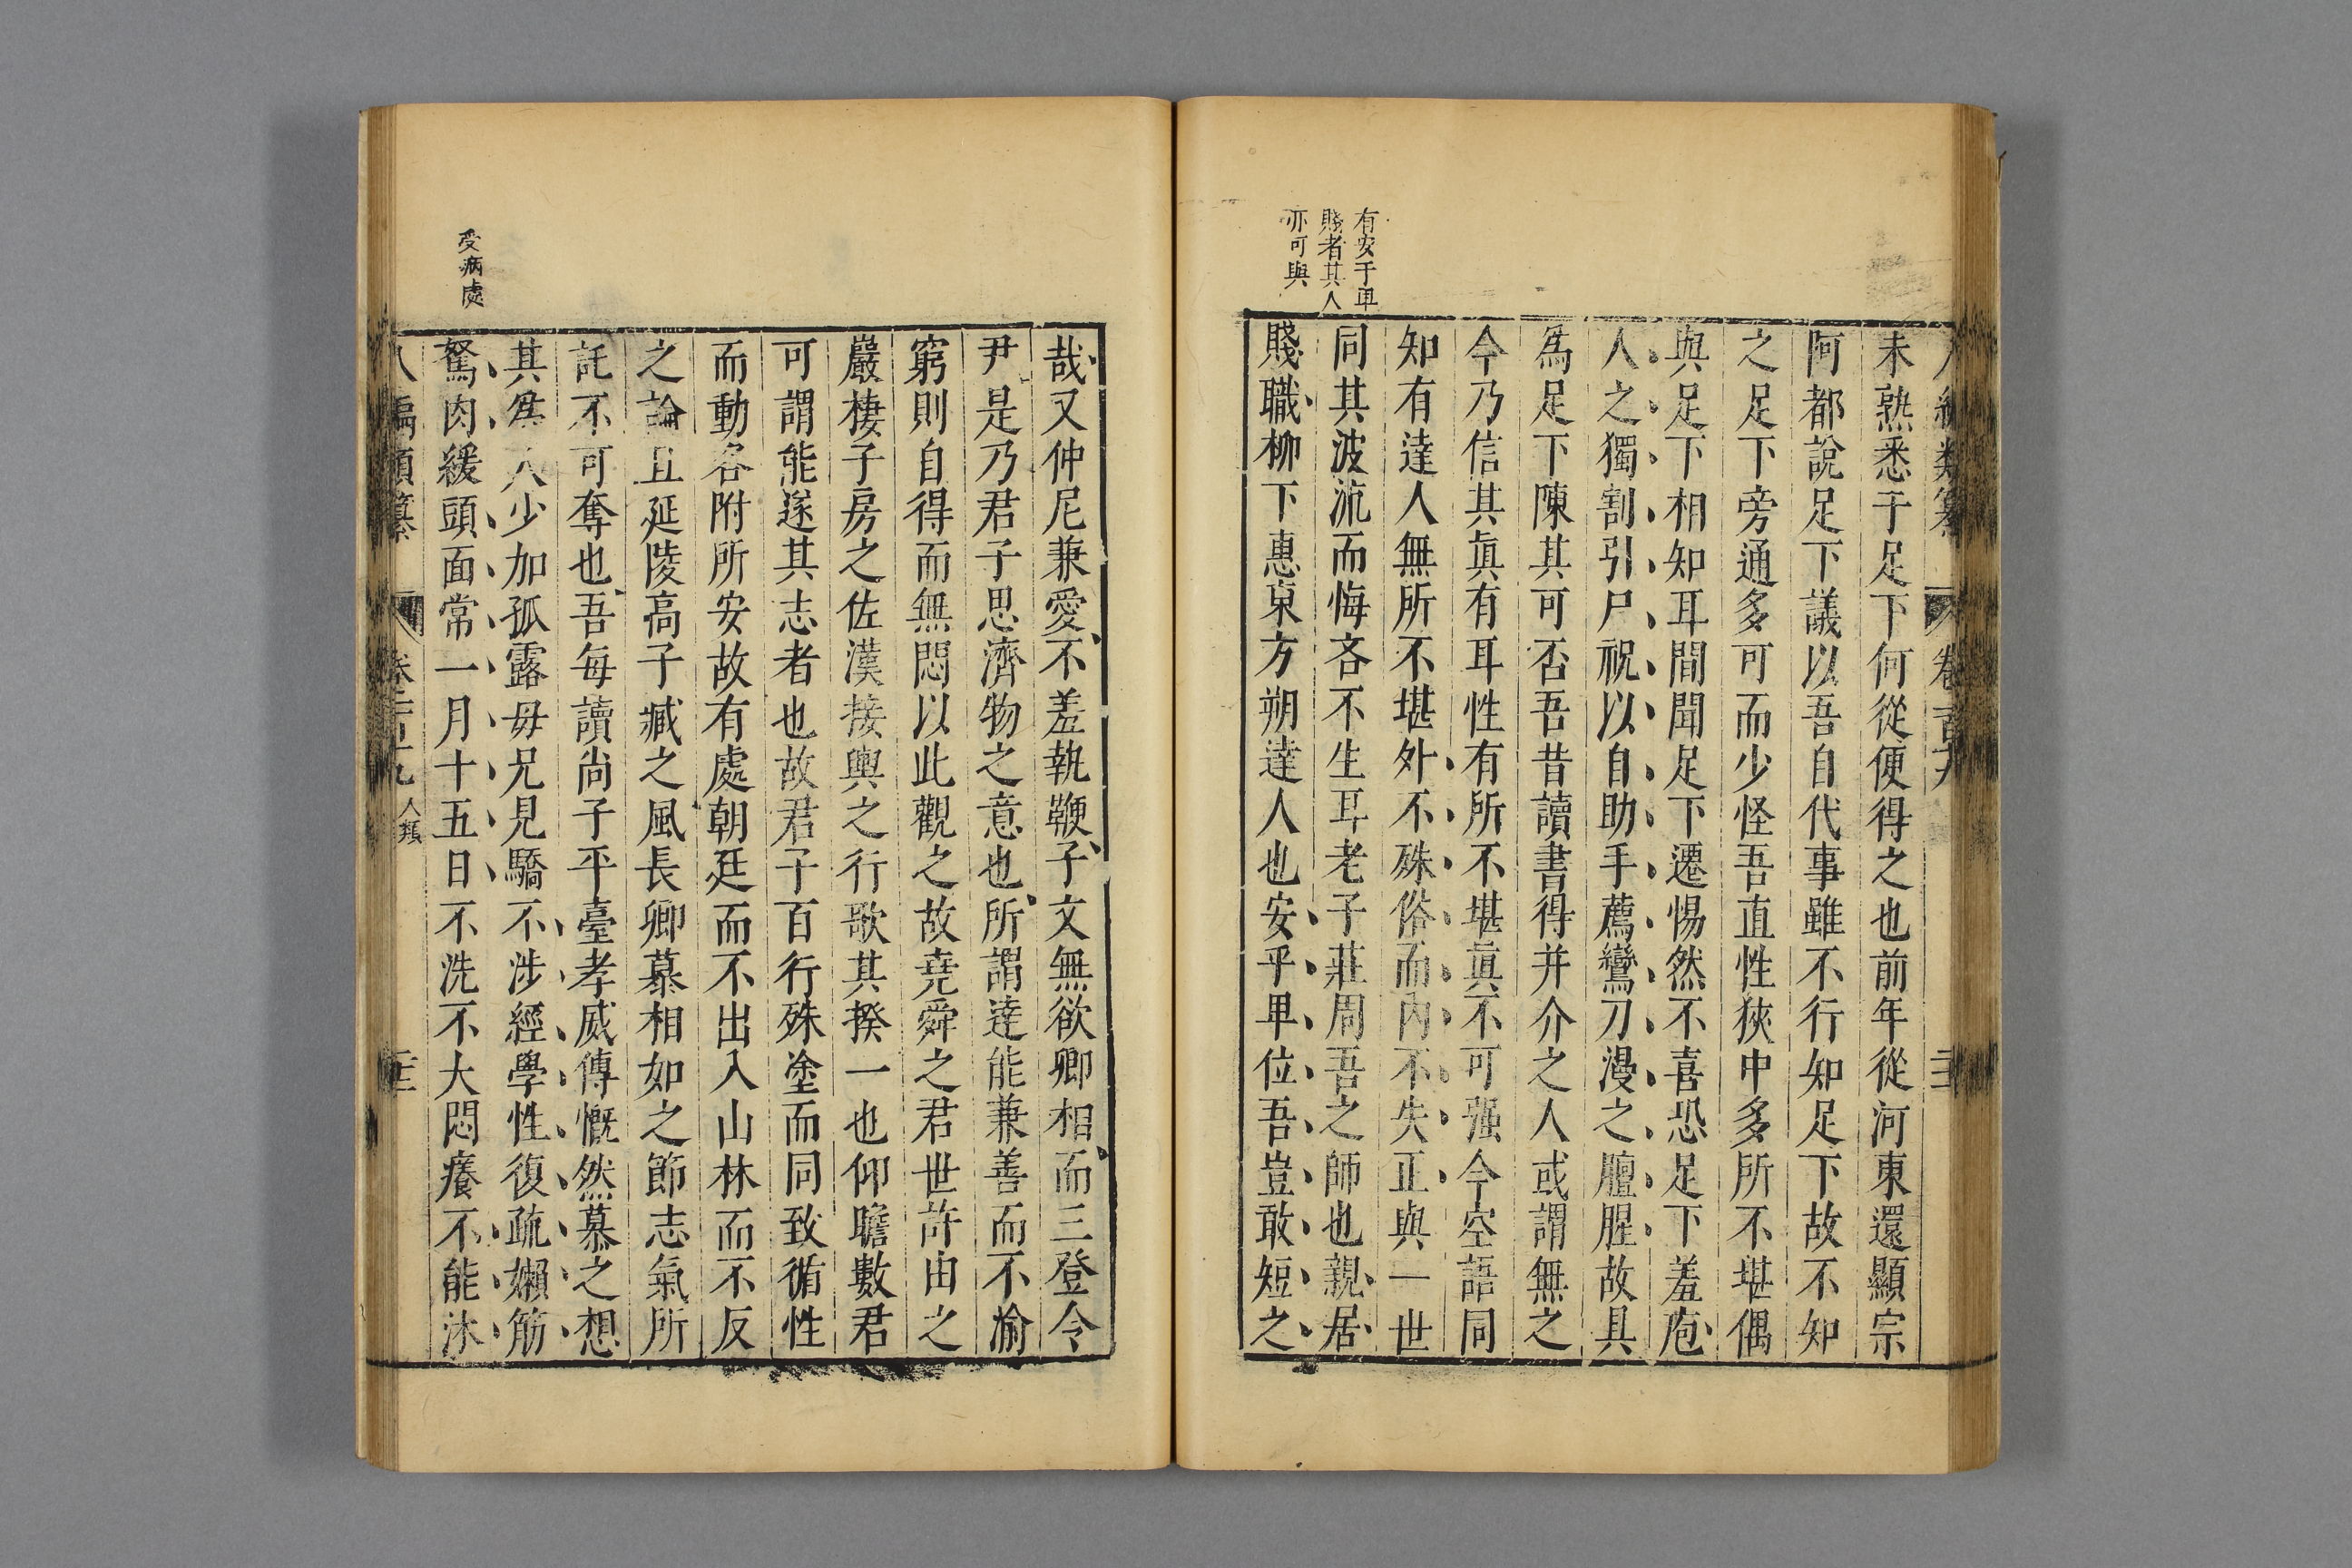 未熟悉于足下何從便得之也前年從河東還顯宗
阿都說足下議以吾自代事雖不行知足下故不知
之足下旁通多可而少怪吾直性狹中多所不堪偶
與足下相知耳間聞足下遷惕然不喜恐足下羞庖
人之獨割引尸祝以自助手薦鸞刀漫之膻腥故具
爲足下陳其可否吾昔讀書得并介之人或謂無之
今乃信其眞有耳性有所不堪眞不可强今空語同
知有達人無所不堪外不殊俗而内不失正與一世
同其波流而悔吝不生耳老子莊周吾之師也親居
賤職柳下惠東方朔達人也安乎卑位吾豈敢短之
有安于卑
賤者其人
亦可與
哉又仲尼兼愛不羞執鞭子文無欲卿相而三登令
尹是乃君子思濟物之意也所謂達能兼善而不渝
窮則自得而無悶以此觀之故堯舜之君世許由之
巖棲子房之佐漢接輿之行歌其揆一也仰瞻數君
可謂能遂其志者也故君子百行殊塗而同致循性
而動各附所安故有處朝廷而不出入山林而不反
之論且延陵高子臧之風長卿慕相如之節志氣所
託不可奪也吾每讀尚子平臺孝威傳慨然慕之想
其爲人少加孤露毋兄見驕不涉經學性復疏嬾筋
駑肉緩頭面常一月十五日不洗不大悶癢不能沐
受病處
人類